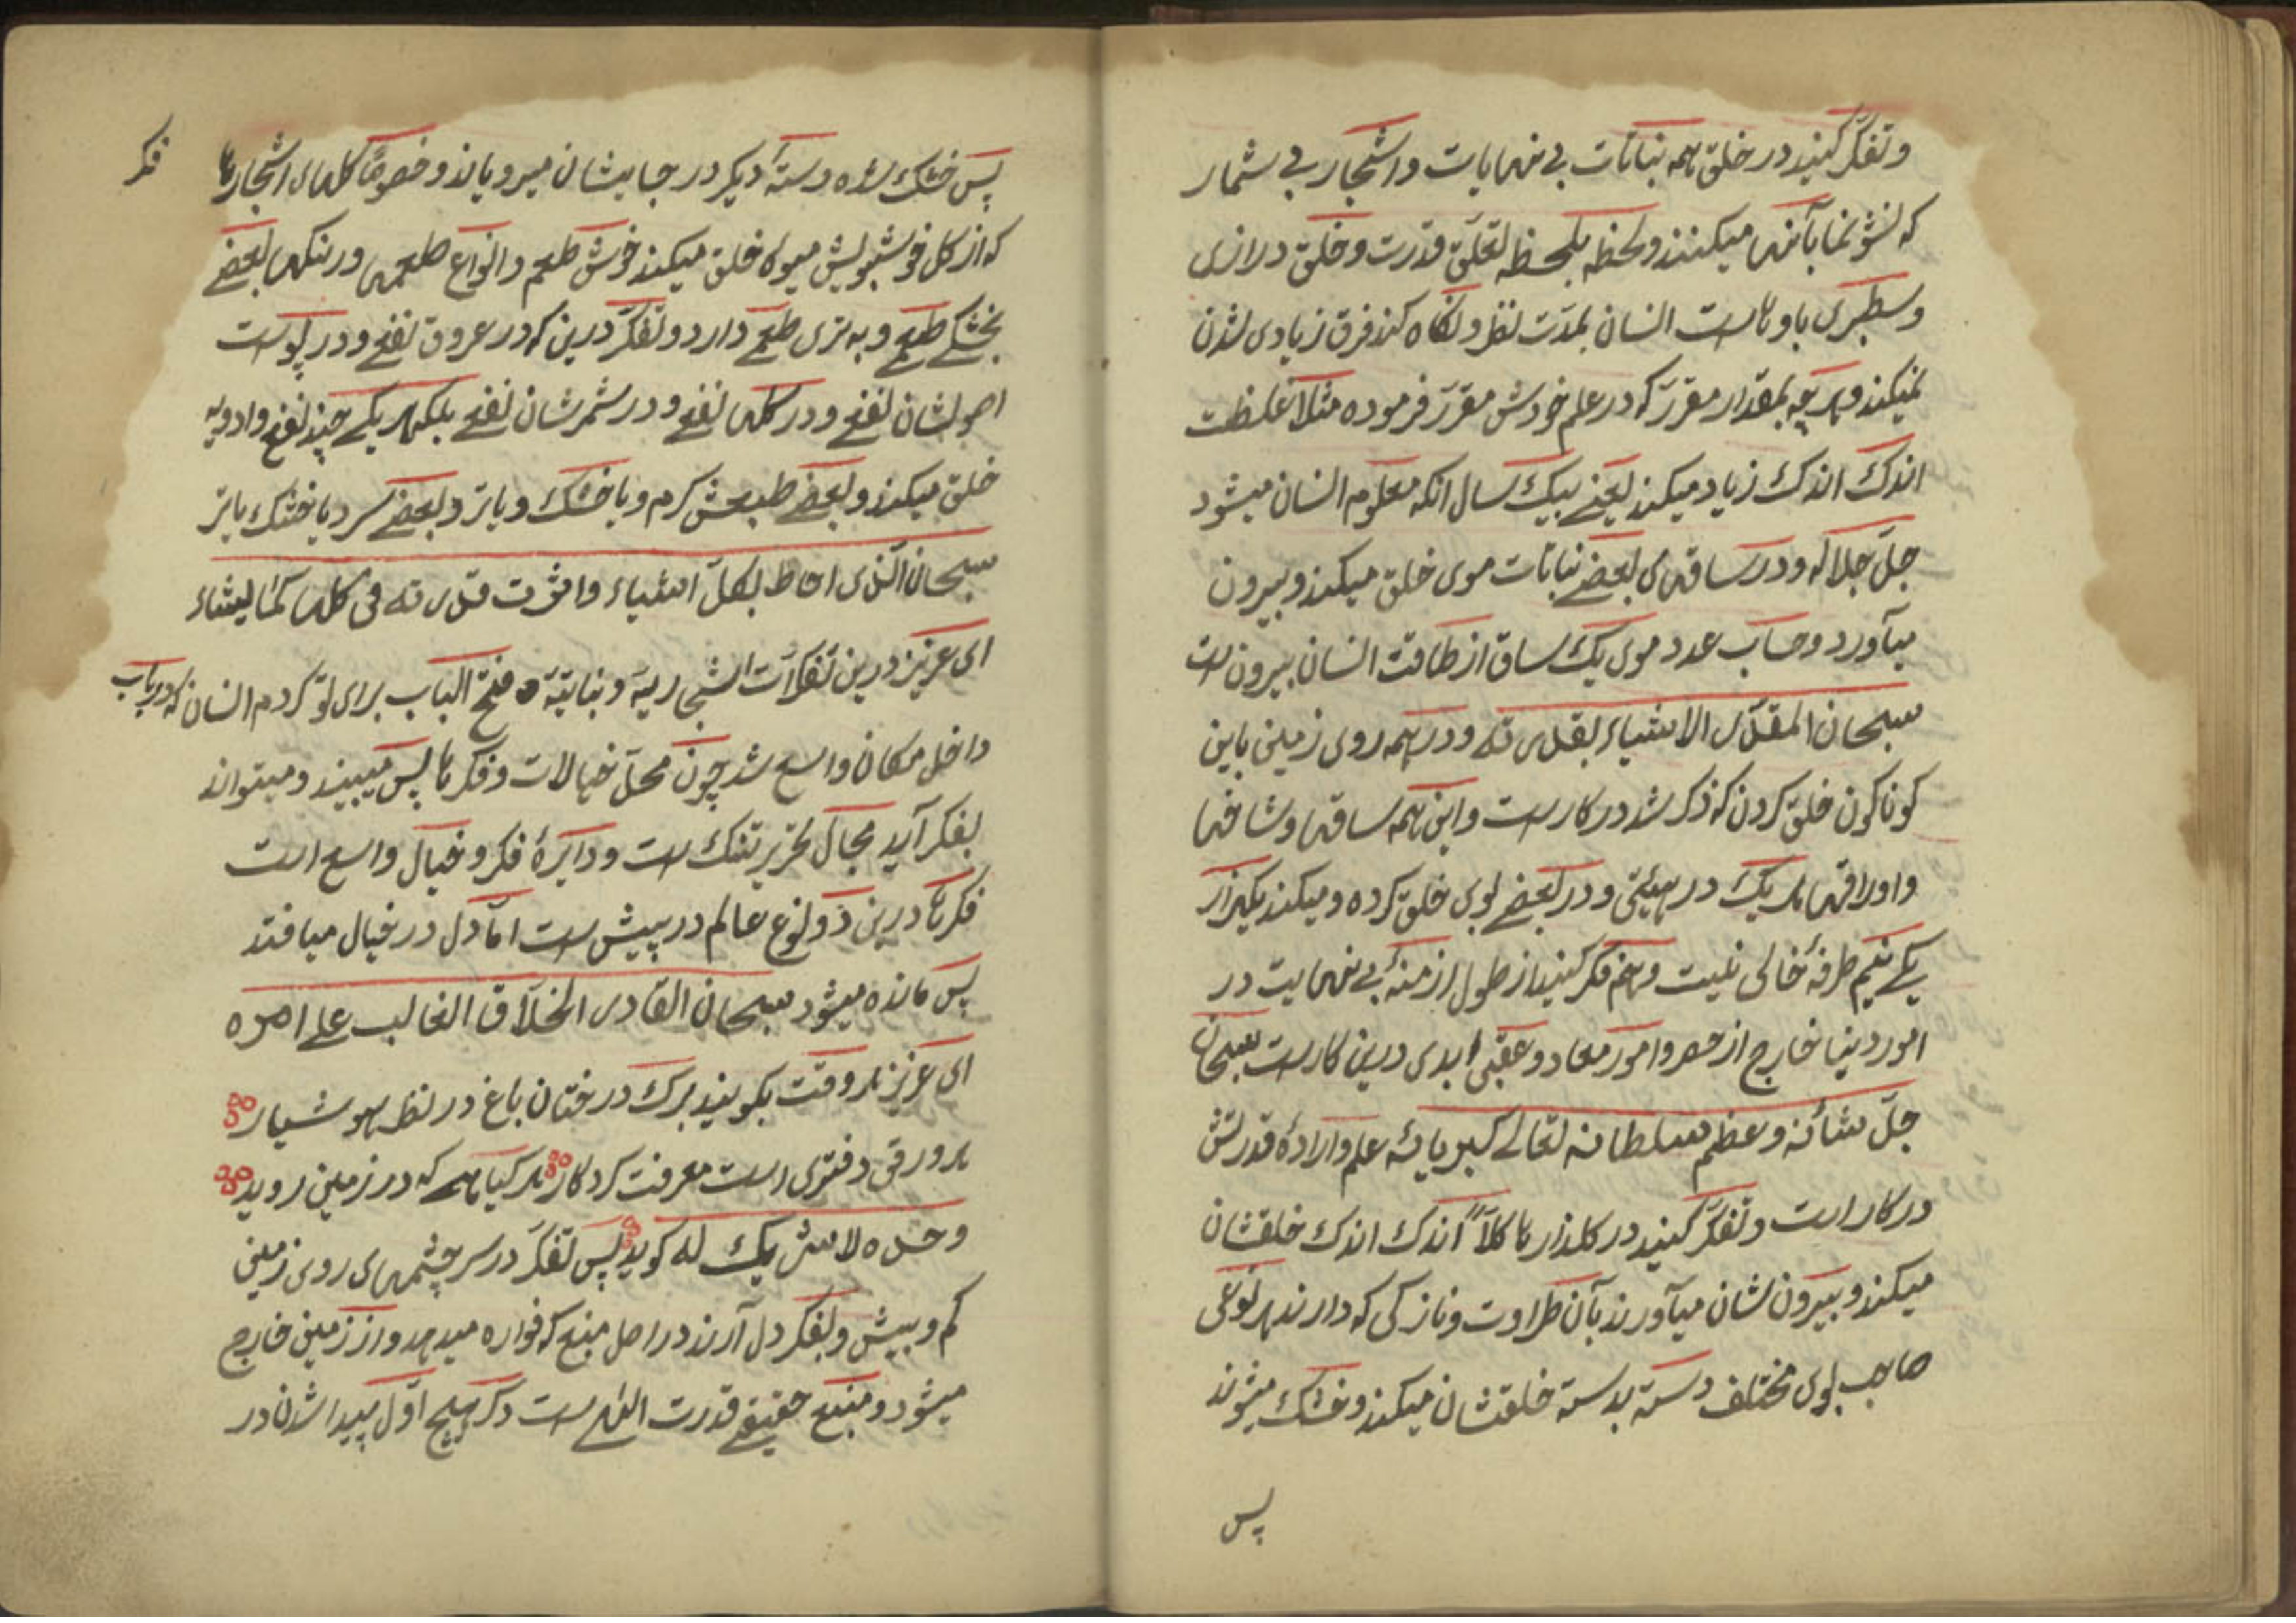 وتفکّر کنید در خلق همه نباتات بی نهایات واشجار بی شمار
که نشو نما بآنها میکنند ولحظه بلحظه لتعلّق قدرت وخلق درازی
وسطبری با وناست انسان بمدّت نظر ونکاه کند فرق زیادی لشدن
نمیکند وهرچه بمقدار مقرّر که در علم خودش مقرّر فرموده مثلا غلظت
اندک اندک زیاد میکند یعنی بیک سال انکه معلوم انسان میشود
جلّ جلاله ودر ساقهای بعضی نباتات موی خلق میکند وبیرون
میآورد وحساب عدد موی یک ساق از طاقت انسان بیرون است
سبحان المقدّر الاشیاء بقدرته ودر همه روی زمین باین
کوناکون خلق کردن که ذکر شد در کار است واین همه ساقها وشاخها
واوراقها هر یک در هیئتی ودر بعضی بوی خلق کرده ومیکند یکهزار
یکی نیم طرفهٔ خالی نیست وهم فکر کنید از طول ازمنهٔ بی نهایت در
امور دنیا خارج از حصر وامور معاد وعقبی ابدی درین کار است سبحان
جلّ شأنه وعظم سلطانه تعالی کبریائه علم وارادهٔ قدرتش
در کار است وتفکّر کنید در کلذارها کلاً اندک اندک خلقشان
میکند وبیرون لشان میآورند بآن طراوت ونازکی که دارند هر نوعی
صاحب بوی مختلف دسته بدسته خلقتشان میکند وخشک میشوند
پس
فکر
پس خشک شده دستهٔ دیکر در جایشان میرویاند وخصوصًا کلهای اشجارها
که از کل خوشبویش میوه خلق میکند خوش طعم وانواع طعمها ورنکها بعضی
بخشکی طعمی وبه تری طعمی دارد وتفکّر درین که در عروق نفعی ودر پوست
اصولشان نفعی ودر کلها نفعی ودر ثمرشان نفعی بلکه هر یکی چند نفع وادویه
خلق میکند وبعضی طبعش کرم ویا خشک ویا تر وبعضی سرد یا خشک یا تر
سبحان الّذی احاط بکلّ اشیاء واثرت قدرته فی کلها کما یشاء
ای عزیز درین تفکرات اشجاریه ونباتیّه فتح الباب برای تو کردم انسان که در باب
داخل مکان واسع شد چون محلّ خیالات وفکرها پس میبیند ومیتواند
بفکر آید مجال تحریر تنک است ودایرهٔ فکر وخیال واسع است
فکرها درین ذو نوع عالم در پیش است امّا دل در خیال میافتد
پس مانده میشود سبحان القادر الخلّاق الغالب علی امره
ای عزیز هر وقت بکویند برک درختان باغ در نظر هوشیار
هر ورقی دفتری است معرفت کردکار هر کیاهی که در زمین روید
وحده لا شریک له کوید پس تفکّر در سر چشمهای روی زمین
کم وبیش وبفکر دل آرند در اصل منبع که فواره میدهد واز زمین خارج
میشود ومنبع حقیقی قدرت الهی است دکر هیچ اوّل پیدا شدن در